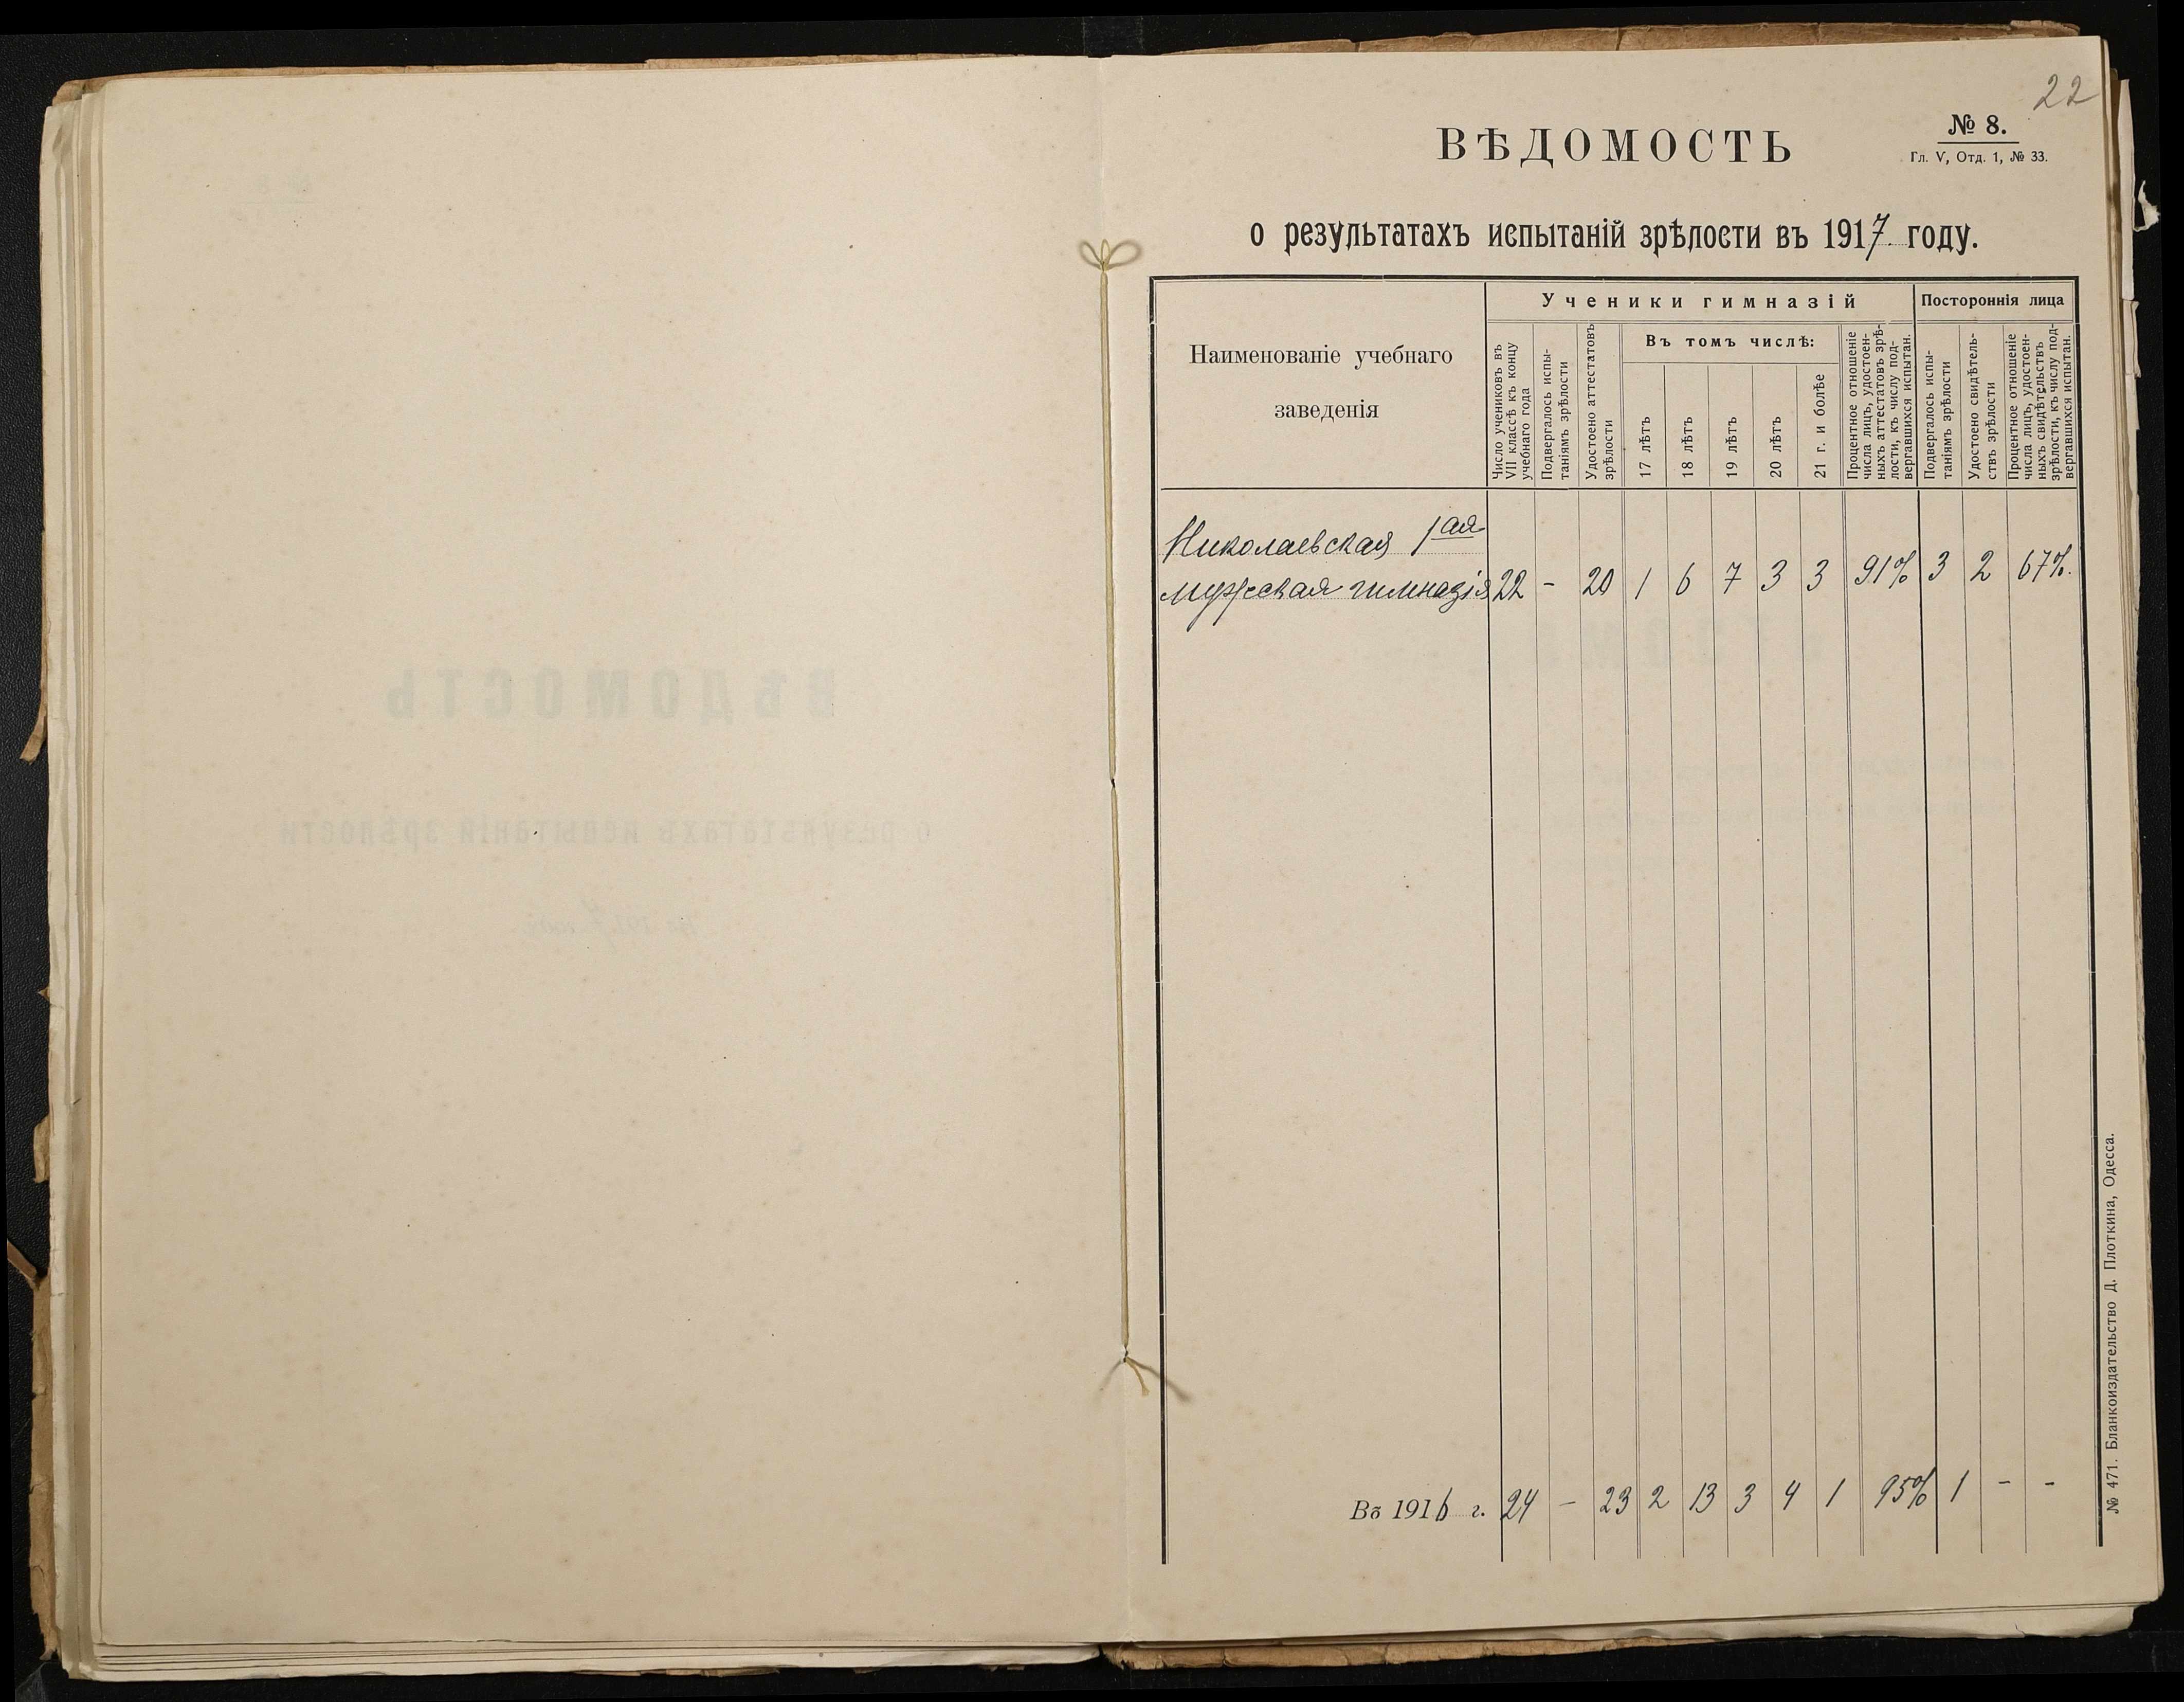 22
№ 8.
Гл. V, Отд. 1, № 33.
ВѢДОМОСТЬ
о результатахъ испытаній зрѣлости въ 1917 году.
Наименованіе учебнаго
заведенія
Ученики гимназій
Постороннія лица
Число учениковъ въ
VII классѣ къ концу
учебнаго года
Подвергалось испы-
таніямъ зрѣлости
Удостоено аттестатовъ
зрѣлости
Въ томъ числѣ:
17 лѣтъ
18 лѣтъ
19 лѣтъ
20 лѣтъ
21 г. и болѣе
Процентное отношеніе
числа лицъ, удостоен-
ныхъ аттестатовъ зрѣ-
лости, къ числу под-
вергавшихся испытан.
Подвергалось испы-
таніямъ зрѣлости
Удостоено свидѣтель-
ствъ зрѣлости
Процентное отношеніе
числа лицъ, удостоен-
ныхъ свидѣтельствъ
зрѣлости, къ числу под-
вергавшихся испытан.
Николаевская 1ая
мужская гимназія 22 - 20 1 6 7 3 3 91% 3 2 67%.
Въ 1916 г. 24 - 23 2 13 3 4 1 95% 1 - -
№ 471. Бланкоиздательство Д. Плоткина, Одесса.
ВѢДОМОСТЬ
о результатахъ испытаній зрѣлости